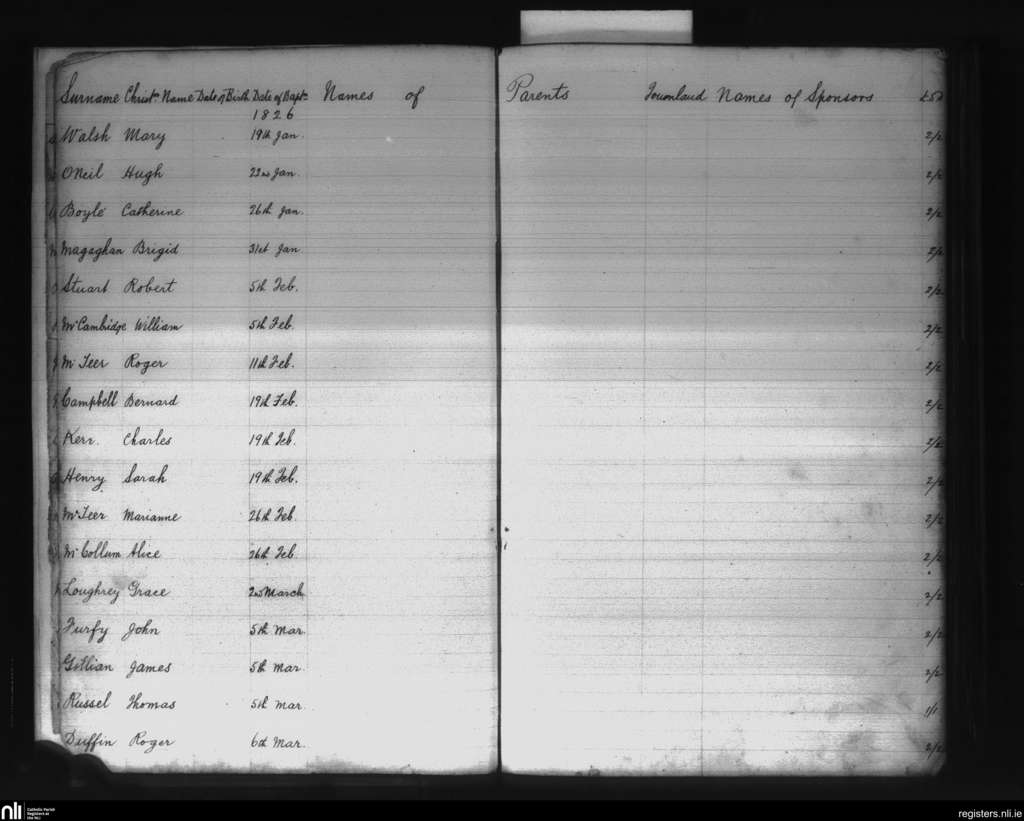 Surname Christn Name Date of Birth Date of Bapt. Names of Parents Townland Names of Sponsors £SD
1826
Walsh Mary 19th Jan. 2/2
ONeil Hugh 22nd Jan. 2/2
Boyle Catherine 26th Jan. 2/2
Magaghan Brigid 31st Jan 2/2
Stuart Robert 5th Feb. 2/2
McCambridge William 5th Feb. 2/2
McTeer Roger 11th Feb. 2/2
Campbell Bernard 19th Feb. 2/2
Kerr. Charles 19th Feb. 2/2
Henry Sarah 19th Feb. 2/2
McTeer Marianne 26th Feb. 2/2
McCollum Alice 26th Feb. 2/2
Loughrey Grace 2nd March 2/2
Furfy John 5th Mar. 2/2
Gillian James 5th Mar. 2/2
Russel Thomas 5th Mar. 1/1
Duffin Roger 6th Mar. 2/2
nli Catholic Parish
Registers at
the NLI
registers.nli.ie